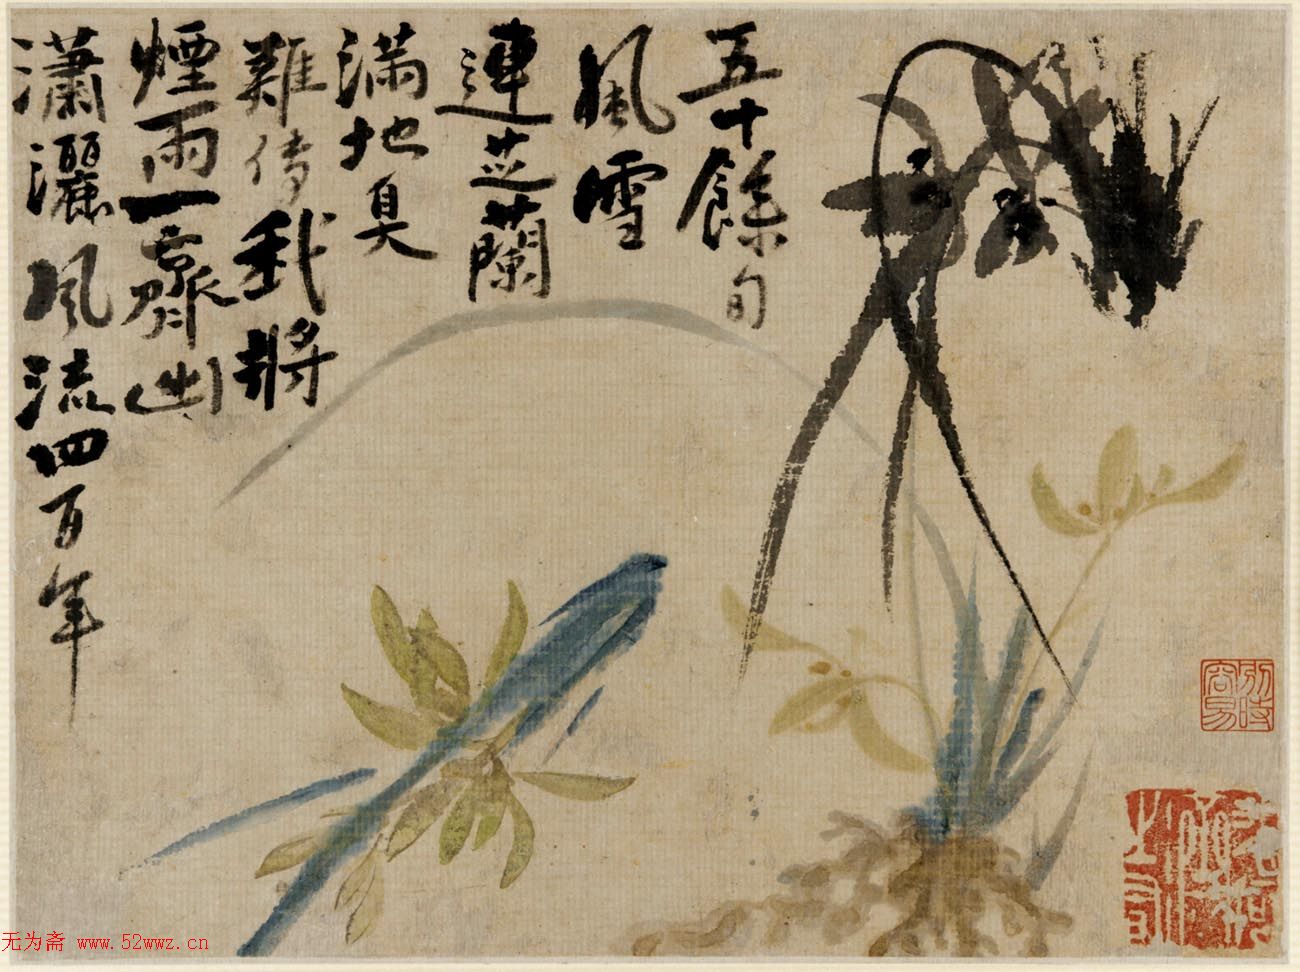 五十餘旬
風雪
連芝蘭
滿地臭
難傳我將
煙雨一齊出
瀟灑風流四百年
別時
容易
无为斋 www.52wwz.cn